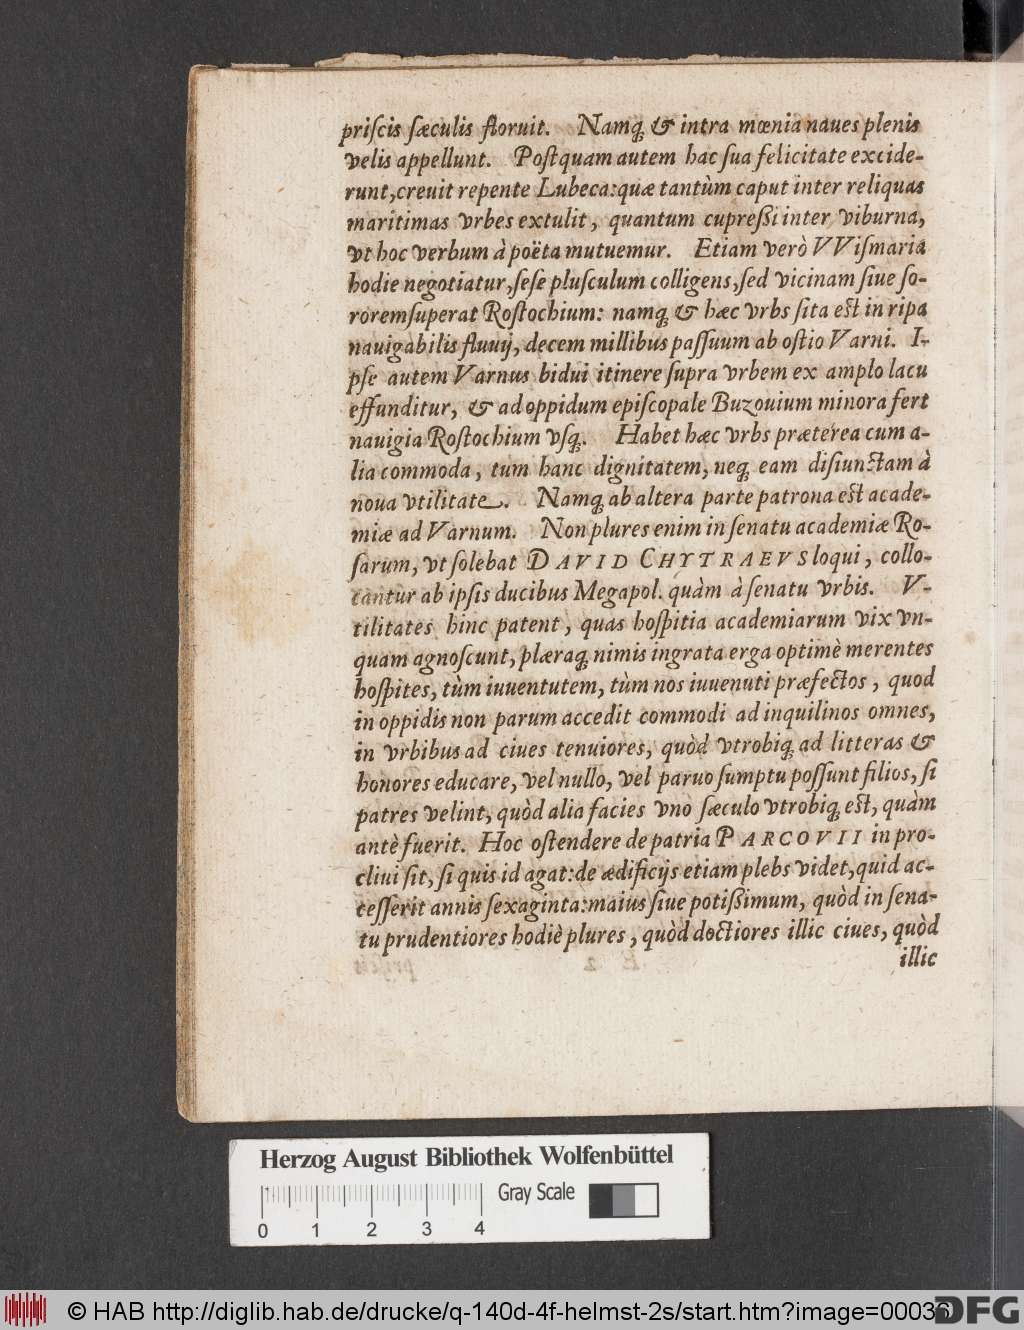 priſcis ſæculis floruit. Namq́; & intra mœnia naues plenis
velis appellunt. Poſtquam autem hac ſua felicitate excide-
runt, creuit repente Lubeca: quæ tantùm caput inter reliquas
maritimas vrbes extulit, quantum cupreſsi inter viburna,
vt hoc verbum à poëta mutuemur. Etiam verò VViſmaria
hodie negotiatur, ſeſe pluſculum colligens, ſed vicinam ſiue ſo-
rorem ſuperat Roſtochium: namq́; & hæc vrbs ſita eſt in ripa
nauigabilis fluuij, decem millibus paſſuum ab oſtio Varni. I-
pſe autem Varnus bidui itinere ſupra vrbem ex amplo lacu
effunditur, & ad oppidum epiſcopale Buzouium minora fert
nauigia Roſtochium vſq́;. Habet hæc vrbs præterea cum a-
lia commoda, tum hanc dignitatem, neq́; eam diſiunctam à
noua vtilitate. Namq́; ab altera parte patrona eſt acade-
miæ ad Varnum. Non plures enim in ſenatu academiæ Ro-
ſarum, vt ſolebat DAVID CHYTRAEVS loqui, collo-
cantur ab ipſis ducibus Megapol. quàm à ſenatu vrbis. V-
tilitates hinc patent, quas hoſpitia academiarum vix vn-
quam agnoſcunt, plæraq́; nimis ingrata erga optimè merentes
hoſpites, tùm iuuentutem, tùm nos iuuenuti præfectos, quod
in oppidis non parum accedit commodi ad inquilinos omnes,
in vrbibus ad ciues tenuiores, quòd vtrobiq́; ad litteras &
honores educare, vel nullo, vel paruo ſumptu poſſunt filios, ſi
patres velint, quòd alia facies vno ſæculo vtrobiq́; eſt, quàm
antè fuerit. Hoc oſtendere de patria PARCOVII in pro-
cliui ſit, ſi quis id agat: de ædificijs etiam plebs videt, quid ac-
ceſſerit annis ſexaginta: maius ſiue potiſsimum, quòd in ſena-
tu prudentiores hodiè plures, quòd doctiores illic ciues, quòd
illic
Herzog August Bibliothek Wolfenbüttel
Gray Scale
0 1 2 3 4
© HAB http://diglib.hab.de/drucke/q-140d-4f-helmst-2s/start.htm?image=00036
DFG